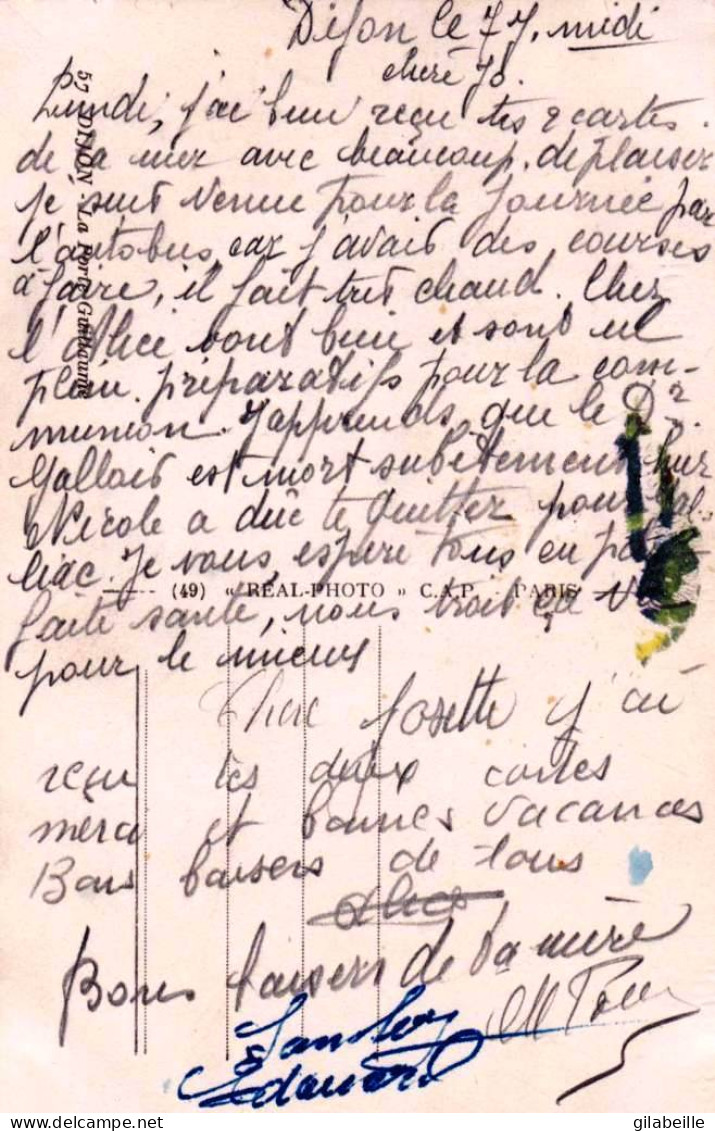 Dijon le 7 7, midi
chère Jo.
Lundi, j'ai bien reçu tes 2 cartes.
de la mer avec beaucoup de plaisir
je suis venue pour la journée par
l'autobus, car j'avais des courses
à faire, il fait très chaud. Chez
l'Alice vont bien et sont en
plain. préparatifs pour la com-
munion. J'apprends que le Dr.
Gallois est mort subitement
Nicole a dûe te quitter pour
liac. Je vous espère tous en par
faite santé, nous trois ça va
pour le mieux
57 DIJON - La Porte Guillaume
(49) « REAL-PHOTO » C.A.P. - PARIS
Chere Josette j'ai
reçu tes deux cartes
merci et bonnes vacances
Bons baisers de tous
Alice
Bons baisers de ta mère
Edouard
gilabeille